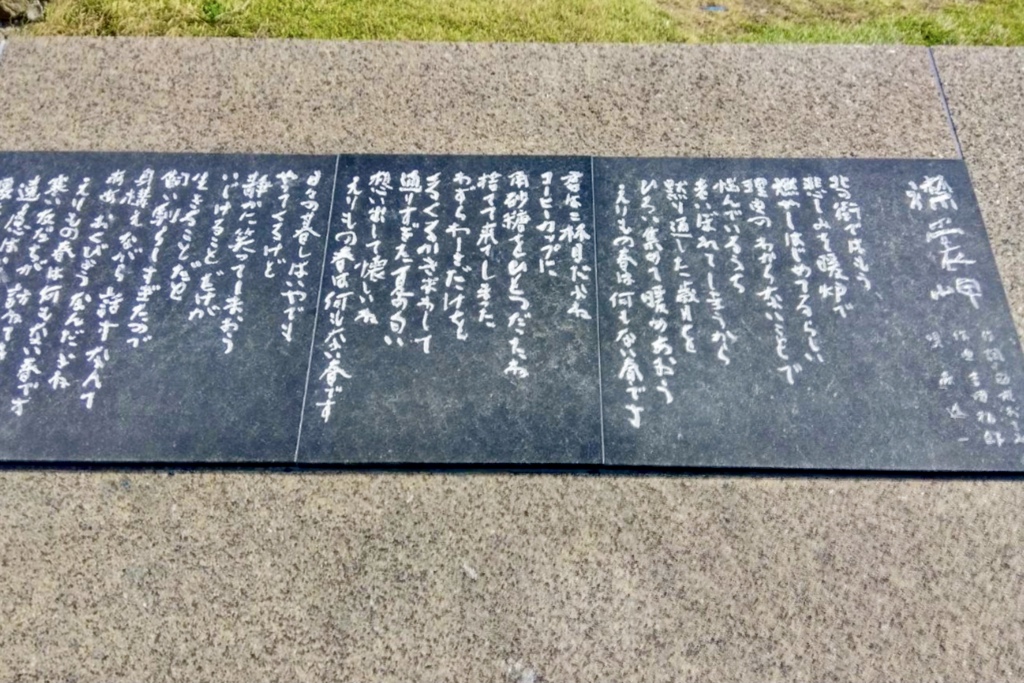 襟裳岬
作詞 岡本おさみ
作曲 吉田拓郎
唄 森進一
北の街ではもう
悲しみを暖炉で
燃やしはじめてるらしい
理由のわからないことで
悩んでいるうち
老いぼれてしまうから
黙り通した歳月を
ひろい集めて暖めあおう
えりもの春は何もない春です
君は二杯目だよね
コーヒーカップに
角砂糖をひとつだったね
捨てて来てしまった
わずらわしさだけを
くるくるかきまわして
通りすぎた夏の匂い
想い出して懐しいね
えりもの春は何もない春です
日々の暮しはいやでも
やってくるけど
静かに笑ってしまおう
いじけることだけが
生きることだと
飼い馴らしすぎたので
身構えながら話すなんて
ああおくびょうなんだよね
えりもの春は何もない春です
寒い友だちが訪ねてき
遠慮はいら
暖